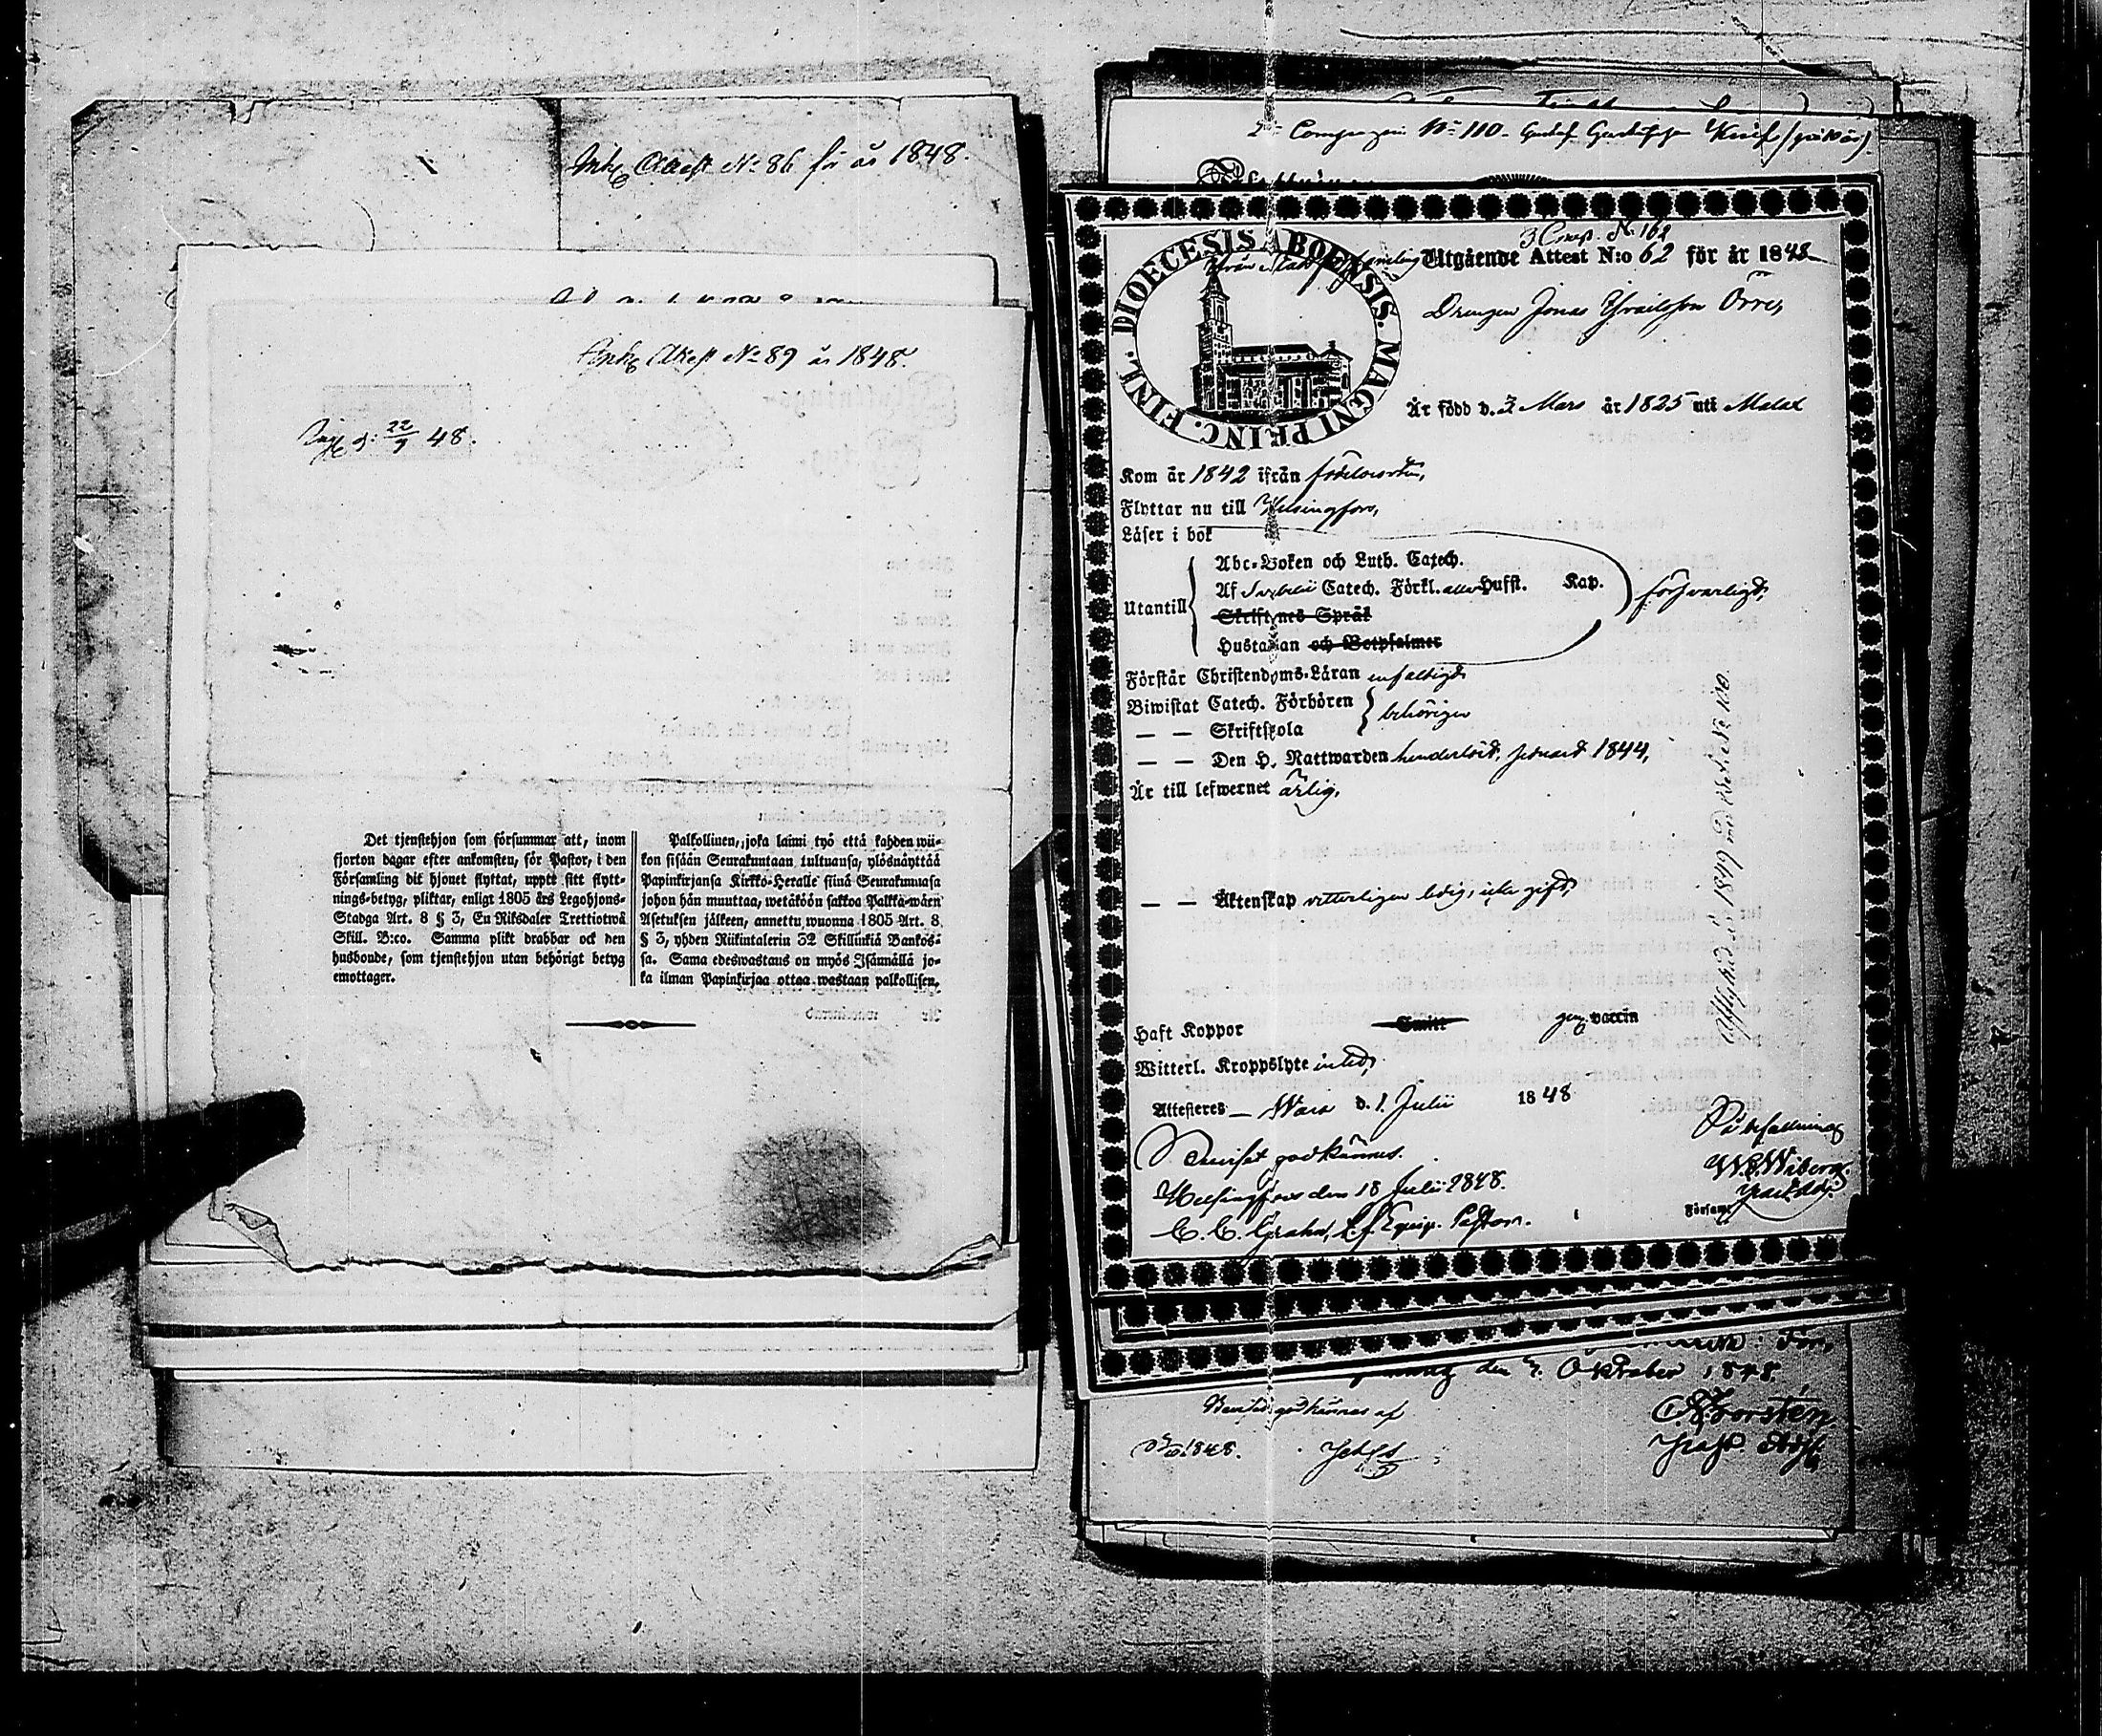 Attest No 86 för år 1848.
Attest No 89 år 1848.
d: 22/9 48.
Det tjenstehjon som försummar att, inom
fjorton dagar efter ankomsten, för Pastor, i den
Församling dit hjonet flyttat, uppte sitt flytt-
nings-betyg, pliktar, enligt 1805 års Legohjons-
Stadga Art. 8 § 3, En Riksdaler Trettiotwå
Skill. B:co. Samma plikt drabbar ock den
husbonde, som tjenstehjon utan behörigt betyg
emottager.
Palkollinen, joka laimi lyö että kahden wii-
kon sisään Seurakuntaan tultuansa, ylösnäyttää
Papinkirjansa Kirkko-Herralle siinä Seurakunnasa
johon hän muuttaa, wetäköön sakkoa Palkka-wäen
Asetuksen jälkeen, annettu wuonna 1805 Art. 8
§ 3, yhden Riikintalerin 32 Skillinkiä Bankos-
sa. Sama edeswastaus on myös Isännällä jo-
ka ilman Papinkirjaa ottaa wastaan palkollisen.
Compagni No 110. Gustaf
3 Comp. No 161
DIOECESIS ABOENSIS. MAGNI PRINC. FINL.
Utgående Attest N:o 62 för år 1848
Drengen Jonas Israelsson Orre,
Är född d. 3 Mars år 1825 uti Malax
Kom år 1842 ifrån födelseorten,
Flyttar nu till Helsingfors,
Läser i bok
Utantill
Abc-Boken och Luth. Catech.
Af Svebilii Catech. Förkl. alla Hufst. Kap.
försvarligt,
Skriftenes Språk
Hustaflan och Botpsalmer
Förstår Christendoms-Läran enfaldigt
Biwistat Catech. Förhören
behörigen
— — Skriftskola
— — Den H. Nattwarden senast 1844,
Är till lefwernet ärlig,
— — Äktenskap vitterligen ledig, icke gift,
Haft Koppor Smitt gen. vaccin
Witterl. Kroppslyte intet,
Attesteres — Wasa d. 1. Julii 1848
På befallning
Beviset godkännes.
Helsingfors den 18 Julii 1848.
C. C. Grahn, t.f. Equip. Pastor.
W. Wiberg.
Past. Adj.
Församl.
Afflyttad år 1849 med attest No 100.
den 7. Oktober 1848.
Beviset godkännes af
1848.
Forstén
Past. Adj.